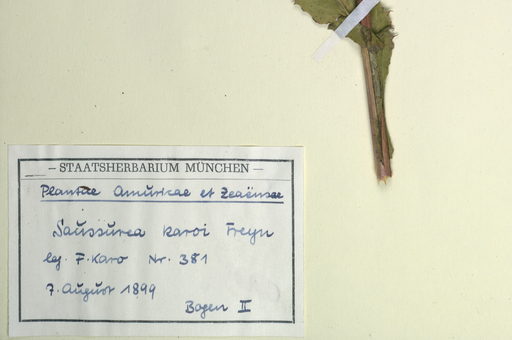 — STAATSHERBARIUM MÜNCHEN —
Plantae Amuricae et Zeaënsae
Saussurea karoi Freyn
leg. F. Karo Nr. 381
7. August 1899
Bogen II